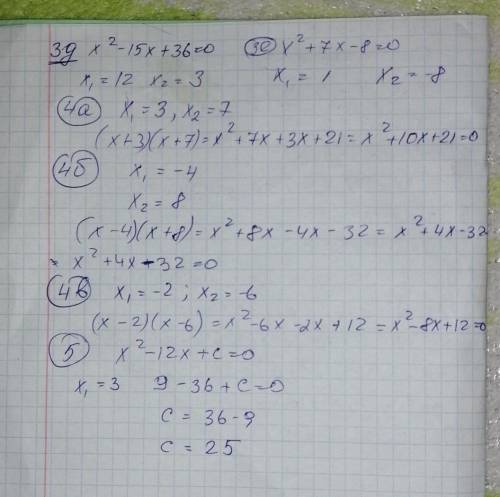 3д x²-15x+36=0 3е x²+7x-8=0
x₁=12 x₂=3 x₁=1 x₂=-8
4а x₁=3, x₂=7
(x+3)(x+7)=x²+7x+3x+21=x²+10x+21=0
4б x₁=-4
x₂=8
(x-4)(x+8)=x²+8x-4x-32=x²+4x-32
= x²+4x-32=0
4в x₁=-2; x₂=-6
(x-2)(x-6)=x²-6x-2x+12=x²-8x+12=0
5 x²-12x+c=0
x₁=3 9-36+c=0
c=36-9
c=25